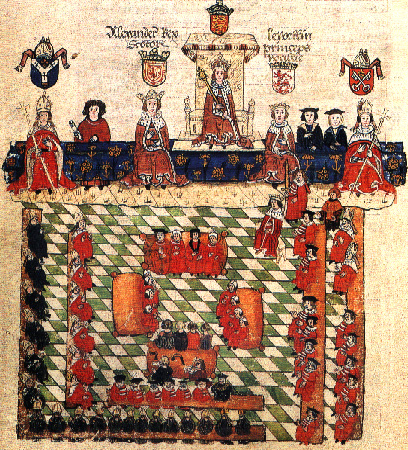 Alexander Rex
Scotor
Lewellin
princeps
Wallie